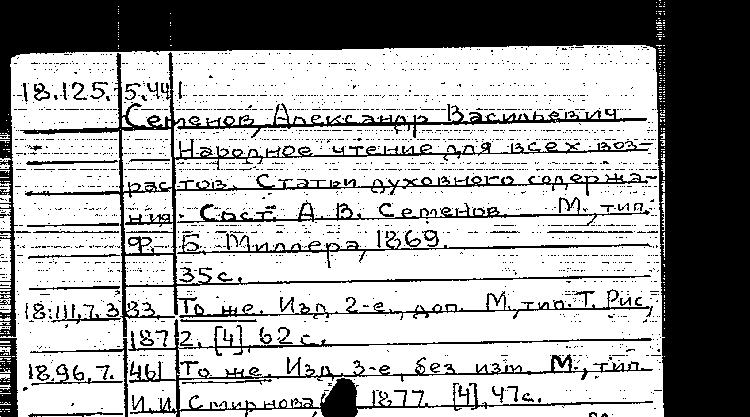 18.125.5.441
Семенов, Александр Васильевич.
Народное чтение для всех воз-
растов. Статьи духовного содержа-
ния. Сост. А. В. Семенов. М., тип.
Ф. Б. Миллера, 1869.
35 с.
18.111.7.333. То же. Изд. 2-е, доп. М., тип. Т. Рис,
1872. [4], 62 с.
18.96.7.461 То же. Изд. 3-е, без изм. М., тип.
И. И. Смирнова, 1877. [4], 47 с.